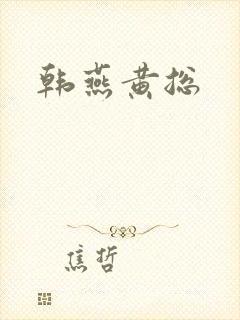 韩燕黄総
焦哲